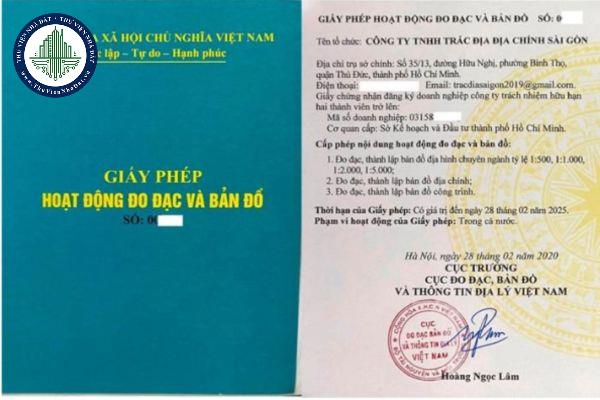 THƯ VIỆN NHÀ ĐẤT
www.ThuVienNhaDat.vn
XÃ HỘI CHỦ NGHĨA VIỆT NAM
lập – Tự do – Hạnh phúc
GIẤY PHÉP
HOẠT ĐỘNG ĐO ĐẠC VÀ BẢN ĐỒ
SỐ: 0
GIẤY PHÉP HOẠT ĐỘNG ĐO ĐẠC VÀ BẢN ĐỒ SỐ: 0
Tên tổ chức: CÔNG TY TNHH TRẮC ĐỊA ĐỊA CHÍNH SÀI GÒN
Địa chỉ trụ sở chính: Số 35/13, đường Hữu Nghị, phường Bình Thọ,
quận Thủ Đức, thành phố Hồ Chí Minh.
Điện thoại: Email: tracdiasaigon2019@gmail.com.
Giấy chứng nhận đăng ký doanh nghiệp công ty trách nhiệm hữu hạn
hai thành viên trở lên:
Mã số doanh nghiệp: 03158
Cơ quan cấp: Sở Kế hoạch và Đầu tư thành phố Hồ Chí Minh.
Cấp phép nội dung hoạt động đo đạc và bản đồ:
1. Đo đạc, thành lập bản đồ địa hình chuyên ngành tỷ lệ 1:500, 1:1.000,
1:2.000, 1:5.000;
2. Đo đạc, thành lập bản đồ địa chính;
3. Đo đạc, thành lập bản đồ công trình.
Thời hạn của Giấy phép: Có giá trị đến ngày 28 tháng 02 năm 2025.
Phạm vi hoạt động của Giấy phép: Trong cả nước.
Hà Nội, ngày 28 tháng 02 năm 2020
CỤC TRƯỞNG
CỤC ĐO ĐẠC, BẢN ĐỒ
VÀ THÔNG TIN ĐỊA LÝ VIỆT NAM
CỘNG HÒA X.H.C.N VIỆT NAM
CỤC
ĐO ĐẠC BẢN ĐỒ
VÀ THÔNG TIN ĐỊA LÝ
VIỆT NAM
BỘ TÀI NGUYÊN VÀ MÔI TRƯỜNG
Hoàng Ngọc Lâm